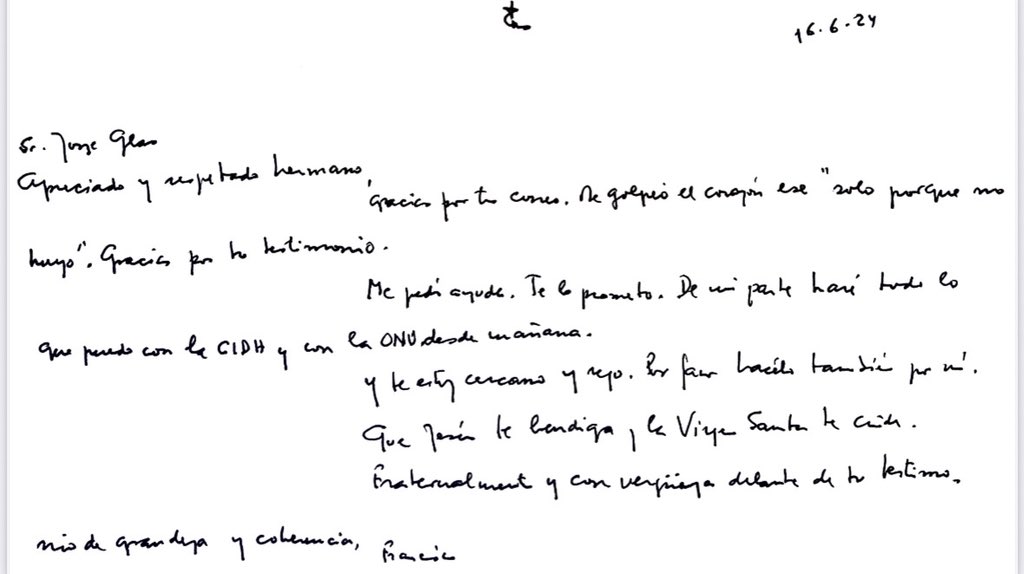 16.6.24
Sr. Jorge Glas
Apreciado y respetado hermano,
Gracias por tu correo. Me golpeó el corazón ese "solo porque no
huyó". Gracias por tu testimonio.
Me pedí ayuda. Te lo prometo. De mi parte haré todo lo
que puedo con la CIDH y con la ONU desde mañana.
y te estoy cercano y rezo. Por favor hacélo también por mí.
Que Jesús te bendiga y la Virgen Santa te cuide.
Fraternalmente y con vergüenza delante de tu testimo-
nio de grandeza y coherencia,
Francisco